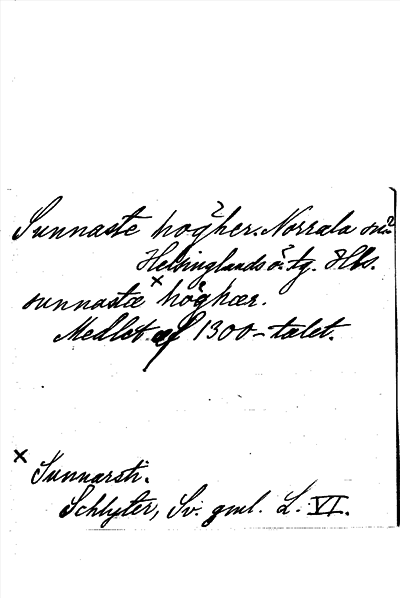 Sunnaste hogher. Norrala sn
Helsinglands ö. tg. Hbs.
sunnastæ × höghær.
Medlet af 1300-talet.
× Sunnarsti.
Schlyter, Sv. gml. L. VI.